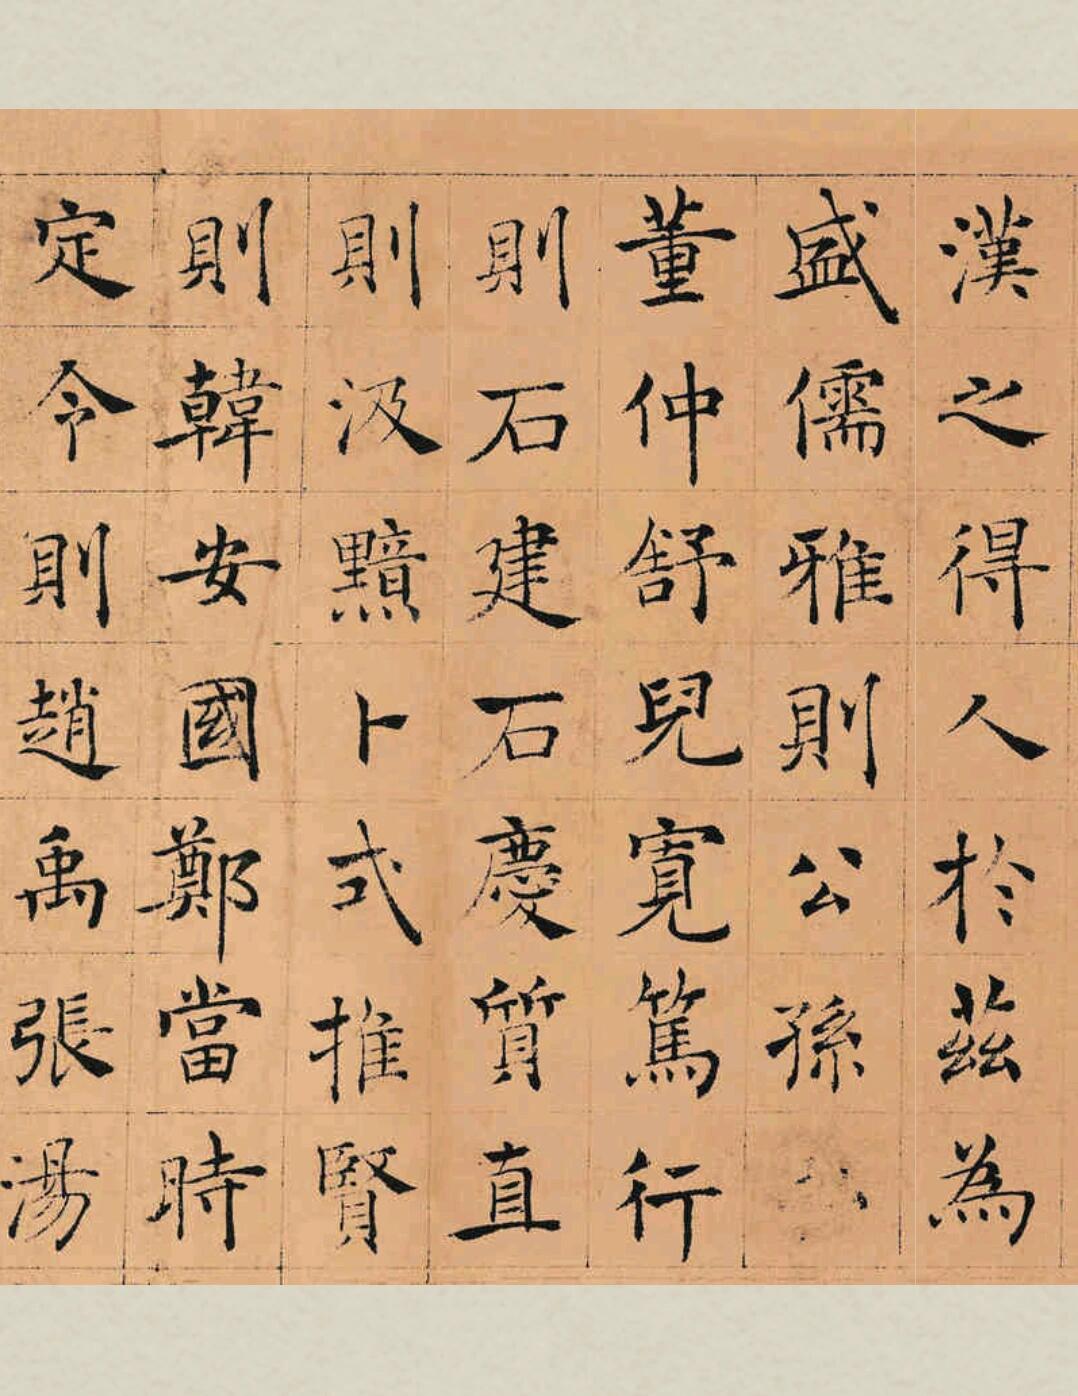 漢之得人於茲為
盛儒雅則公孫
董仲舒兒寬篤行
則石建石慶質直
則汲黯卜式推賢
則韓安國鄭當時
定令則趙禹張湯